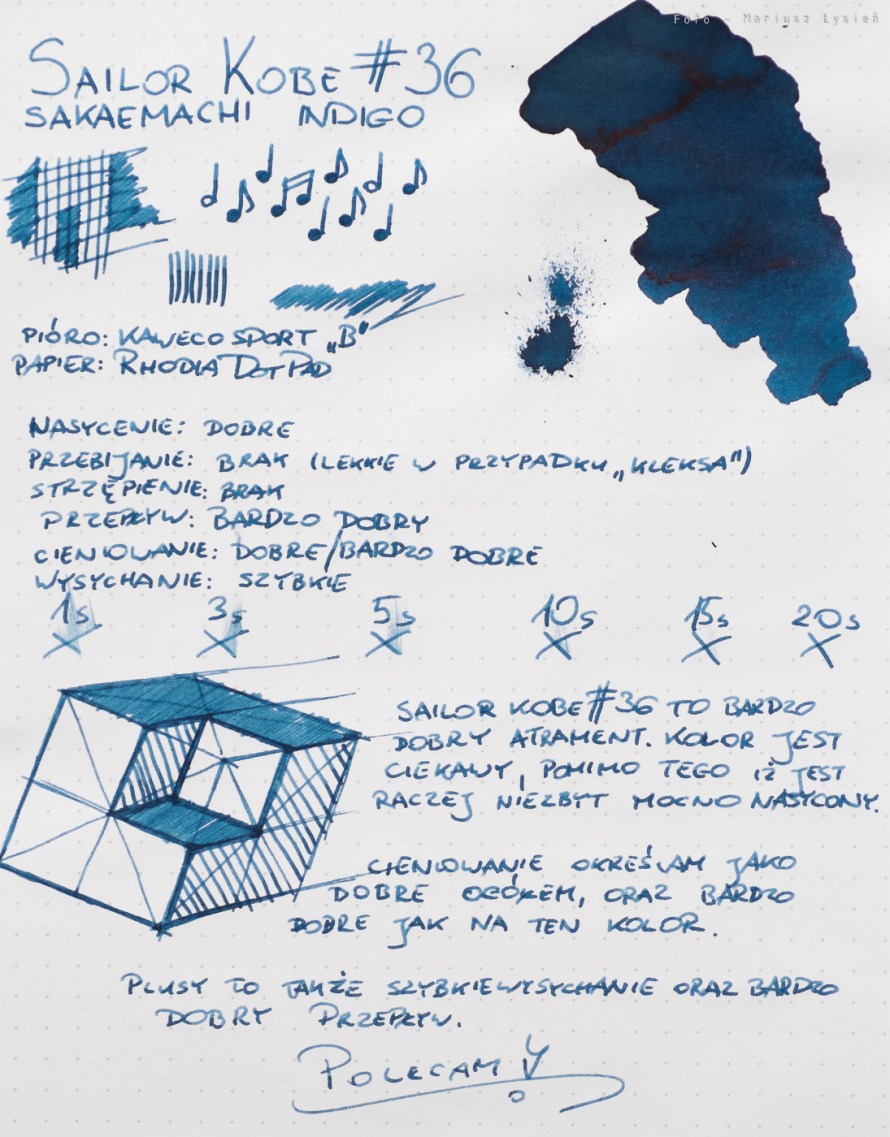 Foto - Mariusz Łysień
SAILOR KOBE #36
SAKAEMACHI INDIGO
PIÓRO: KAWECO SPORT „B"
PAPIER: RHODIA DOTPAD
NASYCENIE: DOBRE
PRZEBIJANIE: BRAK (LEKKIE W PRZYPADKU „KLEKSA")
STRZĘPIENIE: BRAK
PRZEPŁYW: BARDZO DOBRY
CIENIOWANIE: DOBRE/BARDZO DOBRE
WYSYCHANIE: SZYBKIE
1s 3s 5s 10s 15s 20s
SAILOR KOBE #36 TO BARDZO
DOBRY ATRAMENT. KOLOR JEST
CIEKAWY, POMIMO TEGO IŻ JEST
RACZEJ NIEZBYT MOCNO NASYCONY.
CIENIOWANIE OKREŚLAM JAKO
DOBRE OGÓŁEM, ORAZ BARDZO
DOBRE JAK NA TEN KOLOR.
PLUSY TO TAKŻE SZYBKIE WYSYCHANIE ORAZ BARDZO
DOBRY PRZEPŁYW.
POLECAM!